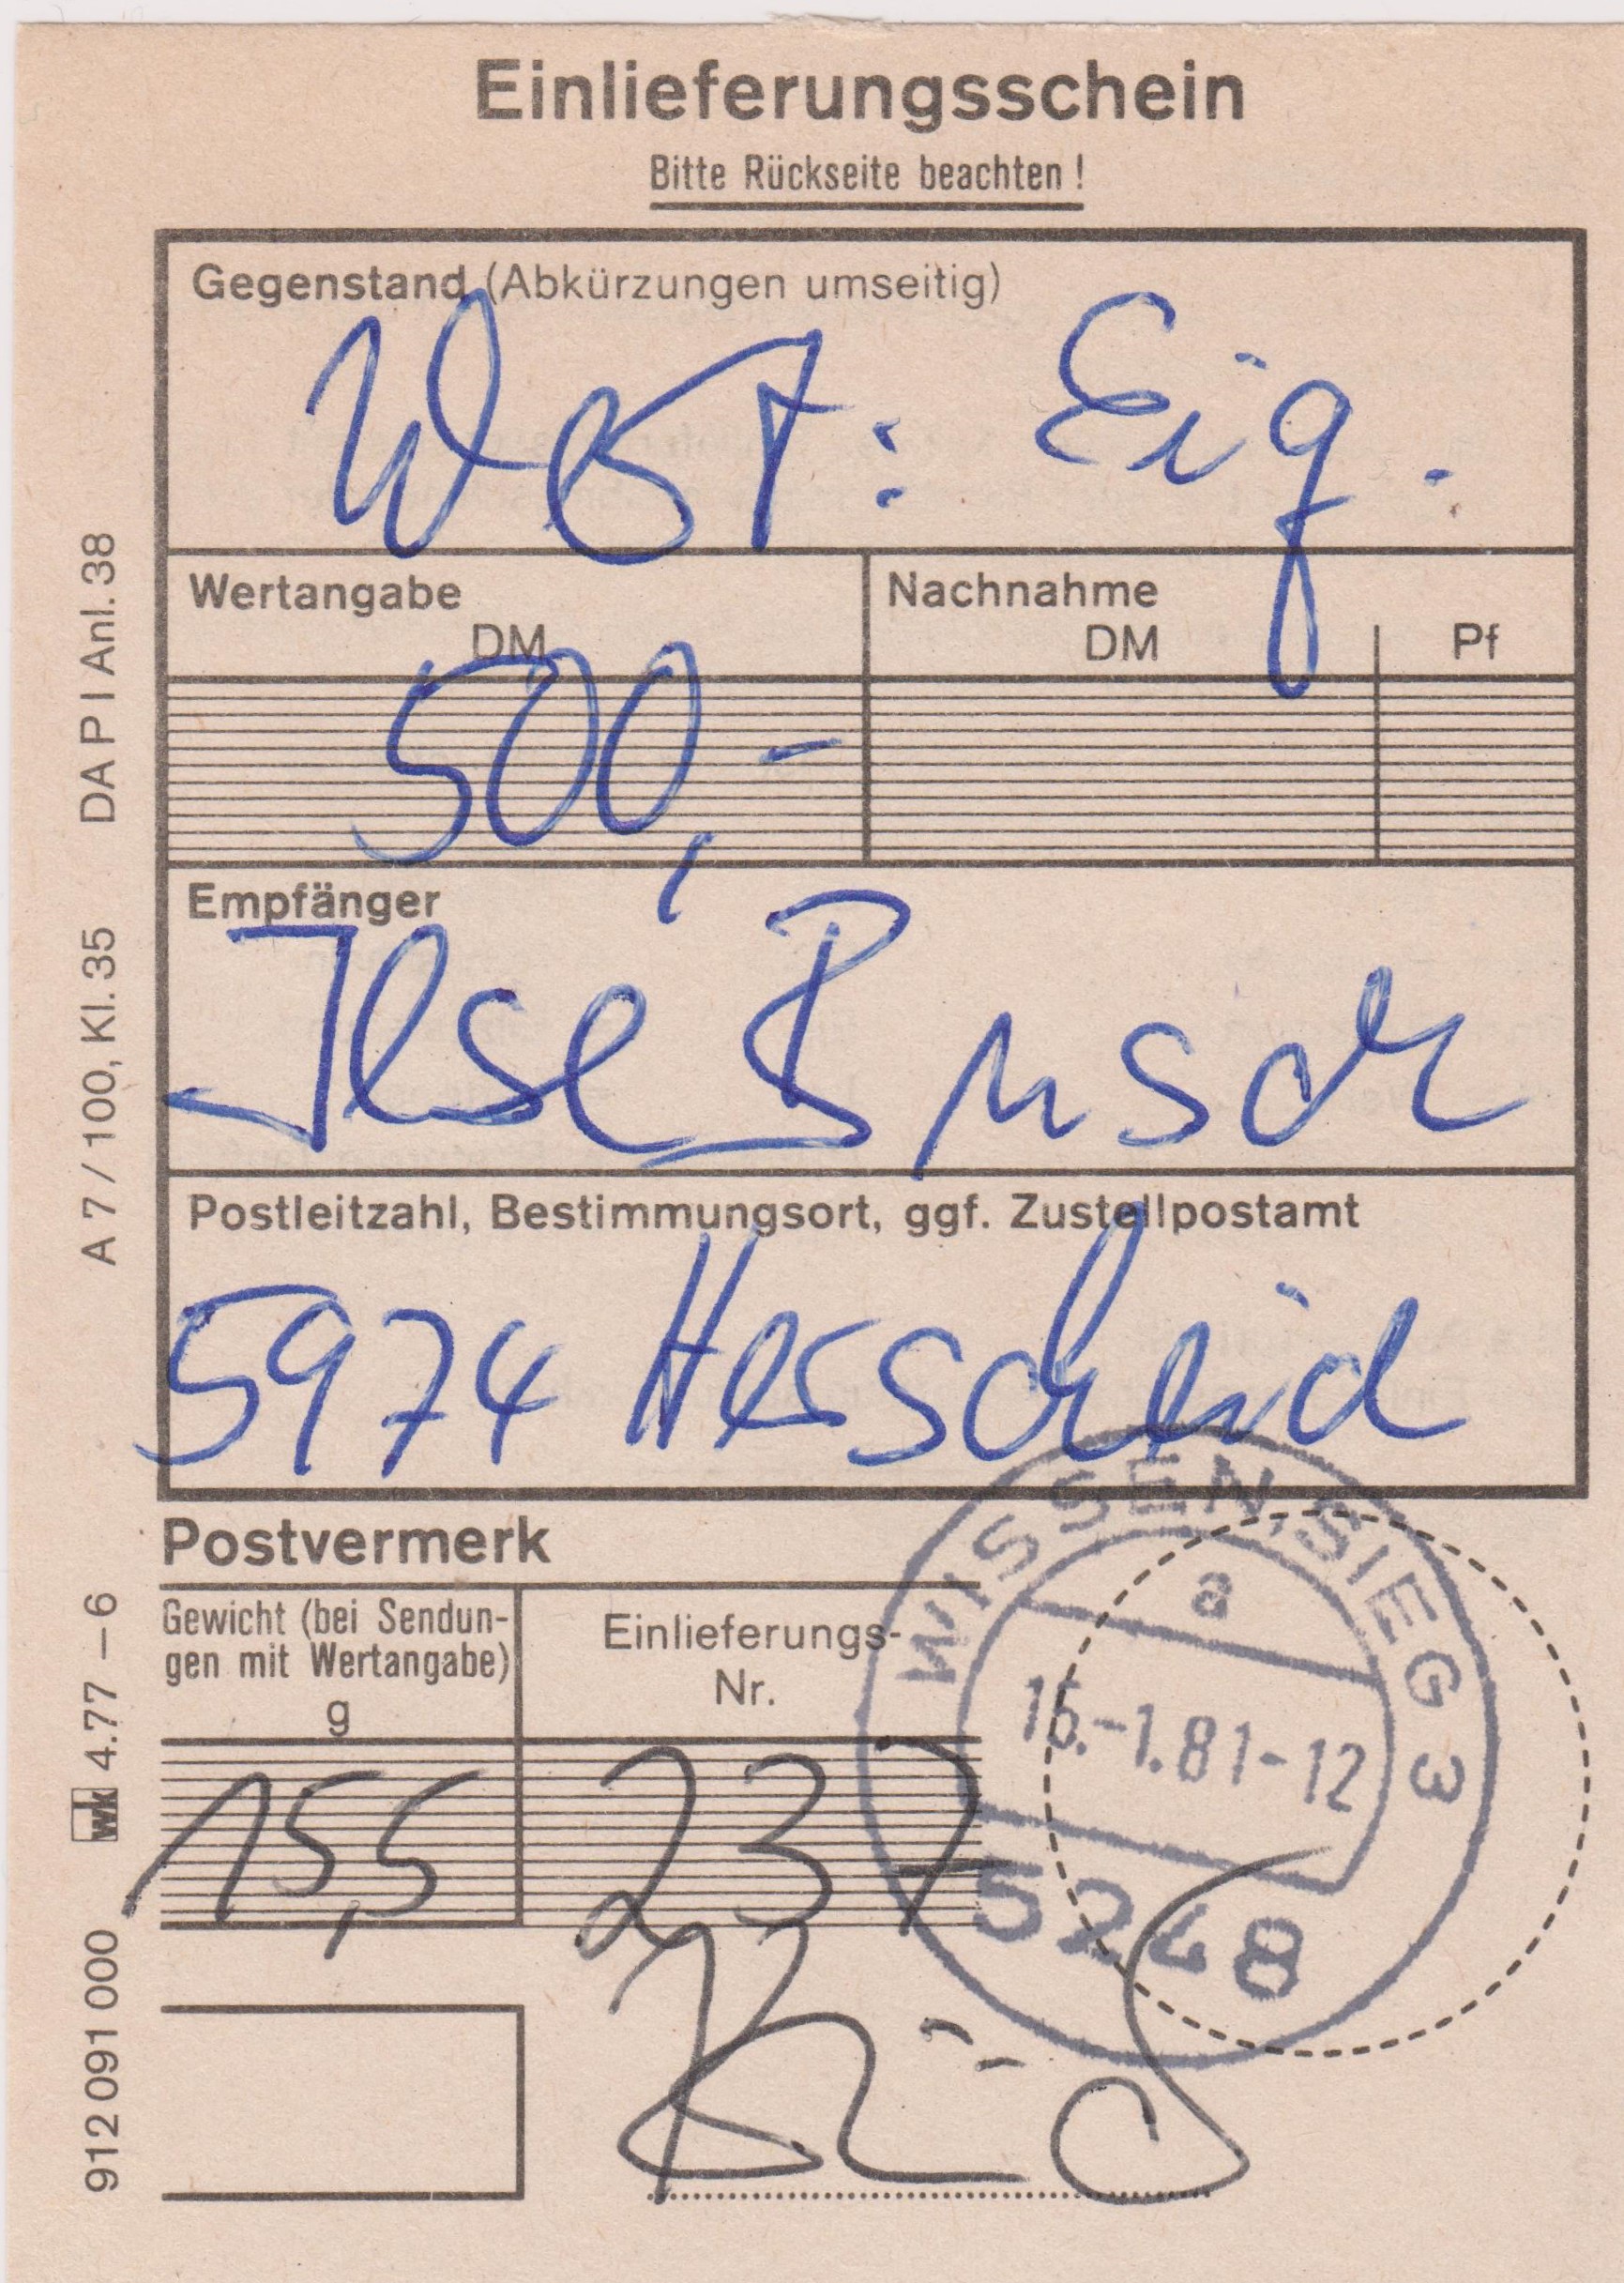 Einlieferungsschein
Bitte Rückseite beachten !
Gegenstand (Abkürzungen umseitig)
Wert: Eig.
Wertangabe
DM
Nachnahme
DM Pf
500,-
Empfänger
Ilse Busch
Postleitzahl, Bestimmungsort, ggf. Zustellpostamt
5974 Herscheid
Postvermerk
Gewicht (bei Sendun-
gen mit Wertangabe)
g
Einlieferungs-
Nr.
15,5
237
WISSEN, SIEG 3
a
-1.81-12
5248
912 091 000 wk 4.77 – 6
A 7 / 100, Kl. 35 DA P I Anl. 38